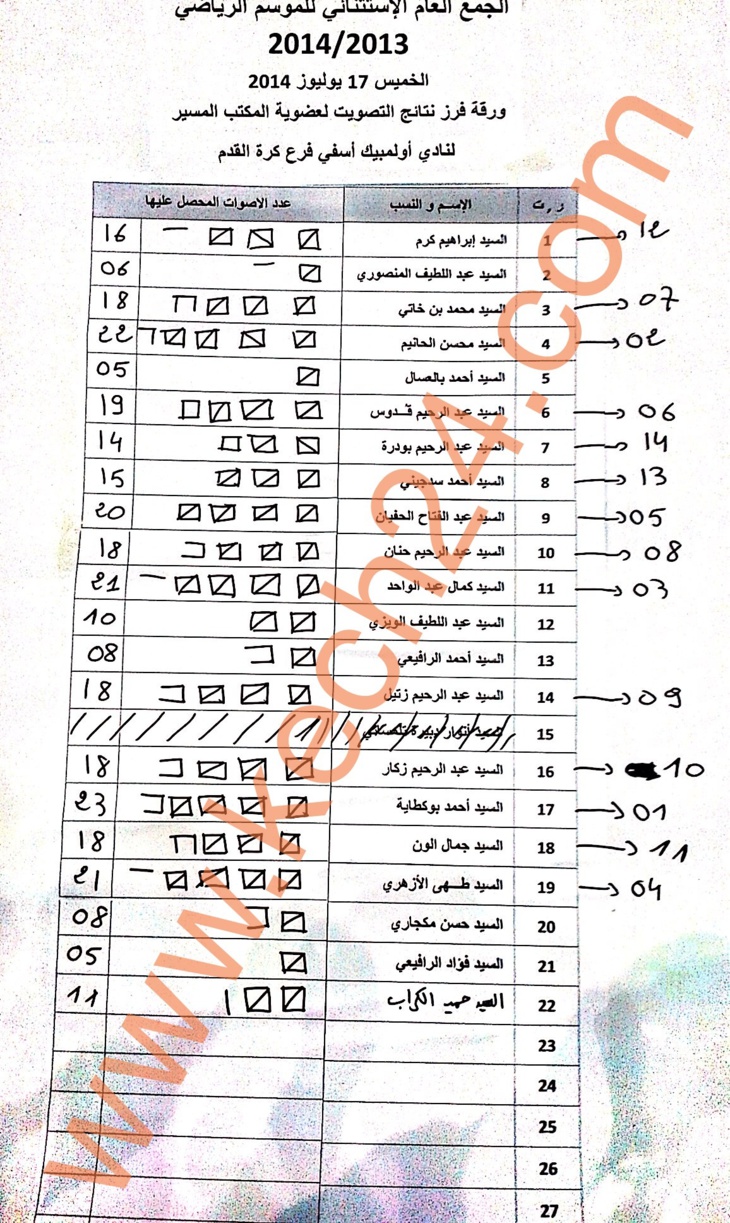 الجمع العام الإستثنائي للموسم الرياضي
2014/2013
الخميس 17 يوليوز 2014
ورقة فرز نتائج التصويت لعضوية المكتب المسير
لنادي أولمبيك أسفي فرع كرة القدم
ر.ت الإسم و النسب عدد الاصوات المحصل عليها
1 السيد إبراهيم كرم 16 12
2 السيد عبد اللطيف المنصوري 06
3 السيد محمد بن خاتي 18 07
4 السيد محسن الحانيم 22 02
5 السيد أحمد بالعسال 05
6 السيد عبد الرحيم قدوس 19 06
7 السيد عبد الرحيم بودرة 14 14
8 السيد أحمد سدجيني 15 13
9 السيد عبد الفتاح الحفيان 20 05
10 السيد عبد الرحيم حنان 18 08
11 السيد كمال عبد الواحد 21 03
12 السيد عبد اللطيف الويزي 10
13 السيد أحمد الرافيعي 08
14 السيد عبد الرحيم زتيل 18 09
15 السيد
16 السيد عبد الرحيم زكار 18 10
17 السيد أحمد بوكطاية 23 01
18 السيد جمال الون 18 11
19 السيد طهى الأزهري 21 04
20 السيد حسن مكجاري 08
21 السيد فؤاد الرافيعي 05
22 السيد حميد الكراب 11
23
24
25
26
27
www.kech24.com